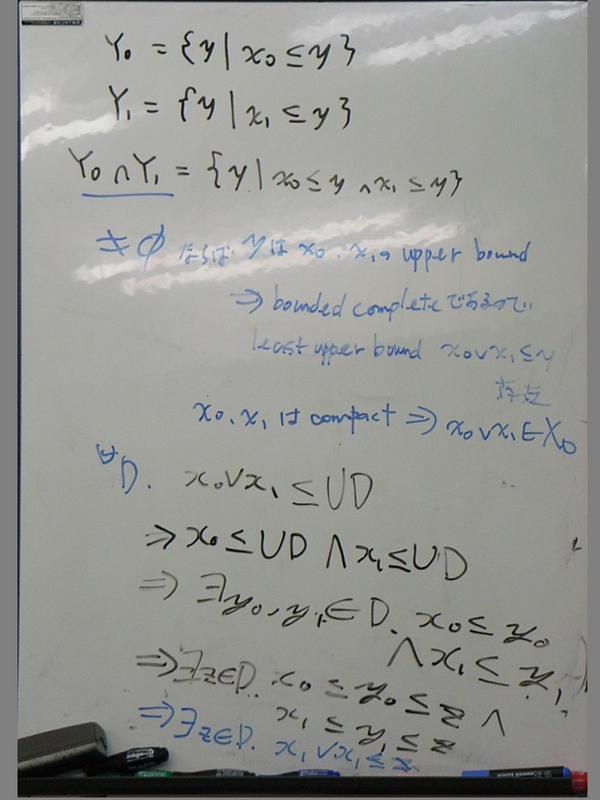 Y₀ = {y | x₀ ≤ y}
Y₁ = {y | x₁ ≤ y}
Y₀ ∩ Y₁ = {y | x₀ ≤ y ∧ x₁ ≤ y}
≠ ∅ ならば y は x₀, x₁の upper bound
⇒ bounded complete であるので,
least upper bound x₀∨x₁ ≤ y
存在
x₀, x₁ は compact ⇒ x₀∨x₁ ∈ X₀
∀D. x₀∨x₁ ≤ ∪D
⇒ x₀ ≤ ∪D ∧ x₁ ≤ ∪D
⇒ ∃y₀, y₁ ∈ D. x₀ ≤ y₀
∧ x₁ ≤ y₁
⇒ ∃z∈D. x₀ ≤ y₀ ≤ z ∧
x₁ ≤ y₁ ≤ z
⇒ ∃z∈D. x₁∨x₁ ≤ z
WHITE BOARD